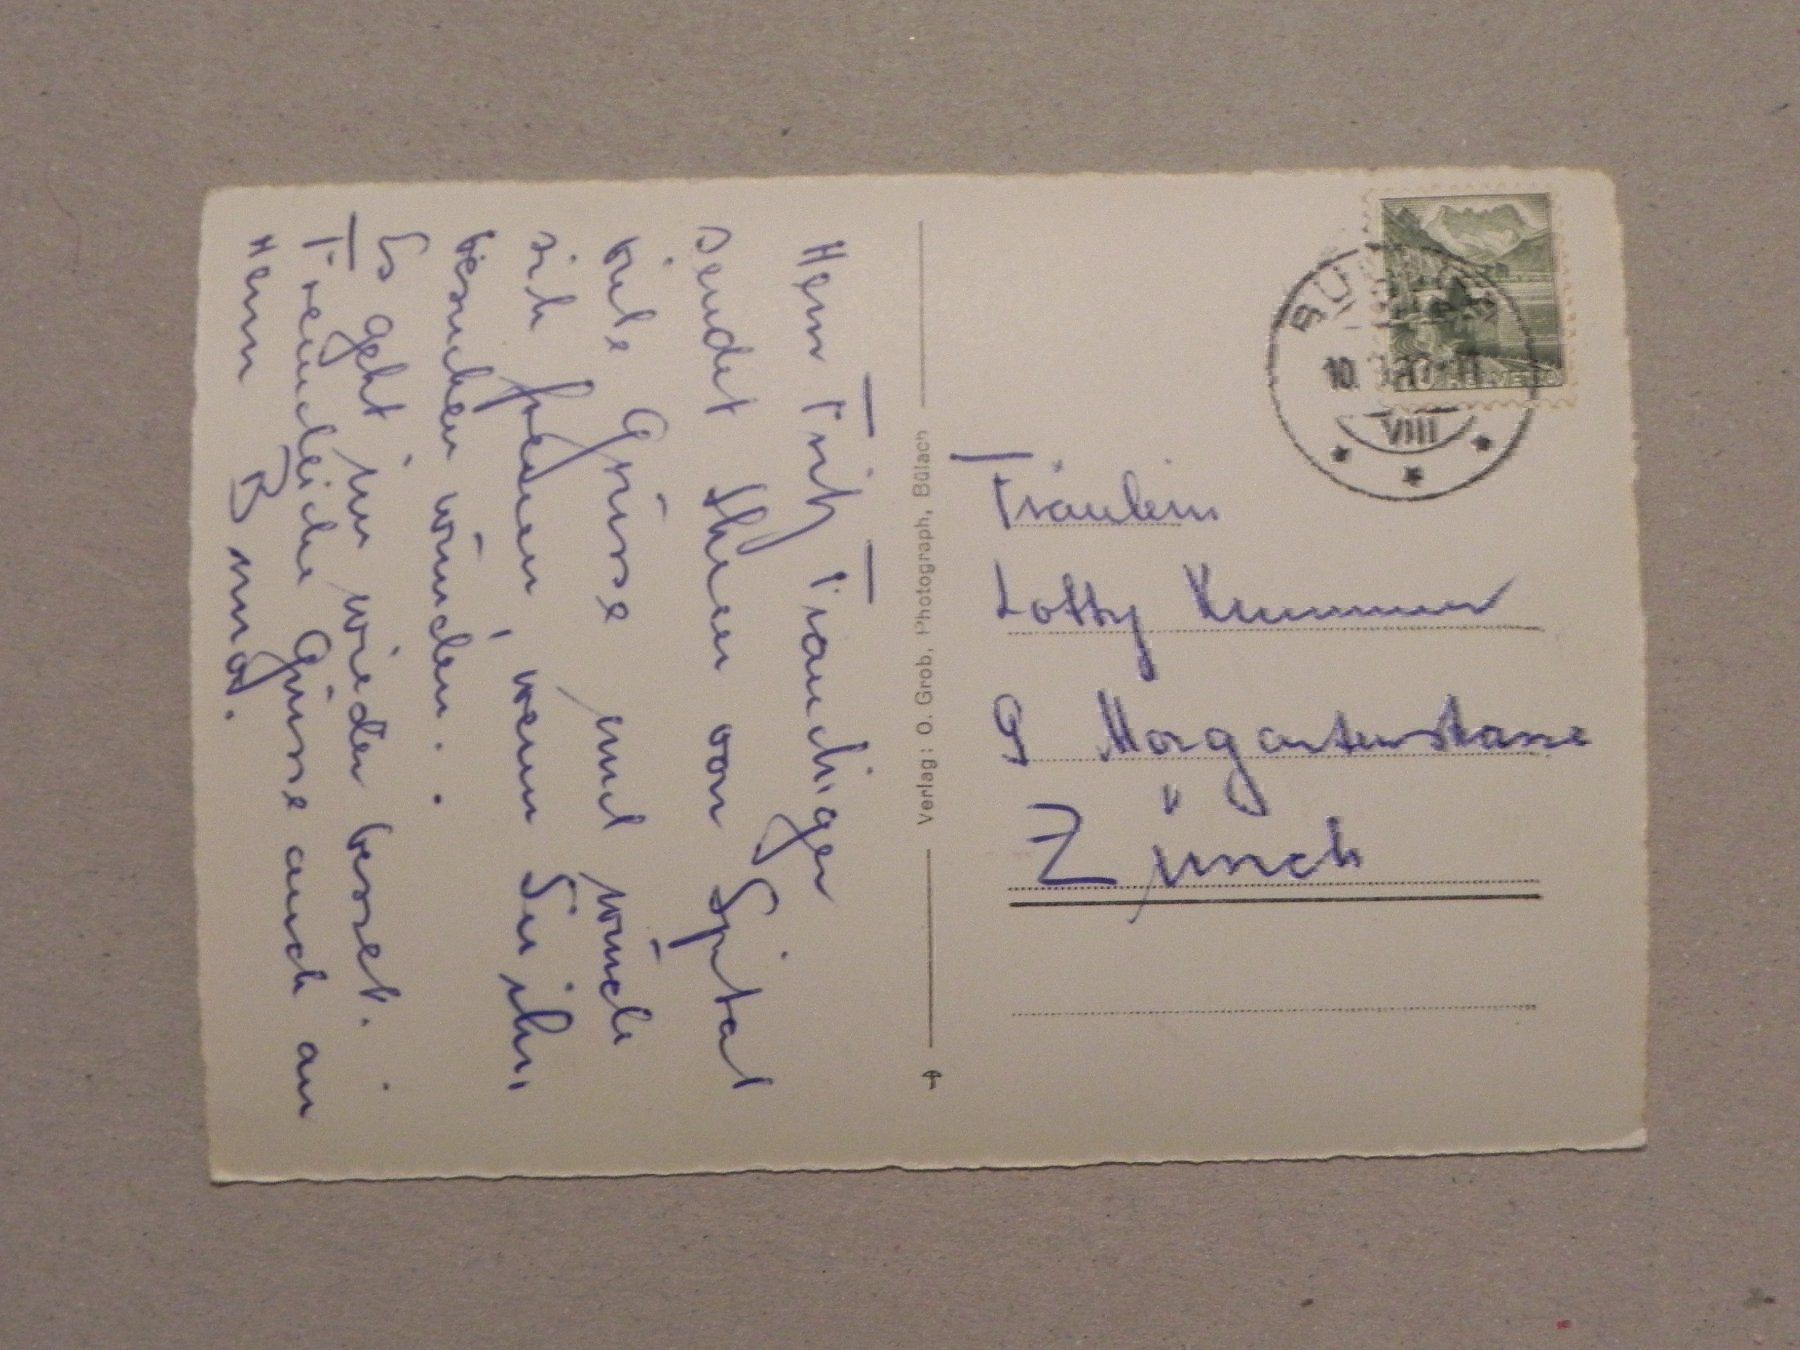 Herr Fritz Frauchiger
sendet Ihnen vom Spital
viele Grüsse und würde
sich freuen, wenn Sie ihn
besuchen würden.
Es geht im wieder besser.
Freundliche Grüsse auch an
Herrn
Verlag: O. Grob, Photograph, Bülach
HELVETIA
10
VIII
Fräulein
Lotty
9 Morgartenstrasse
Zürich